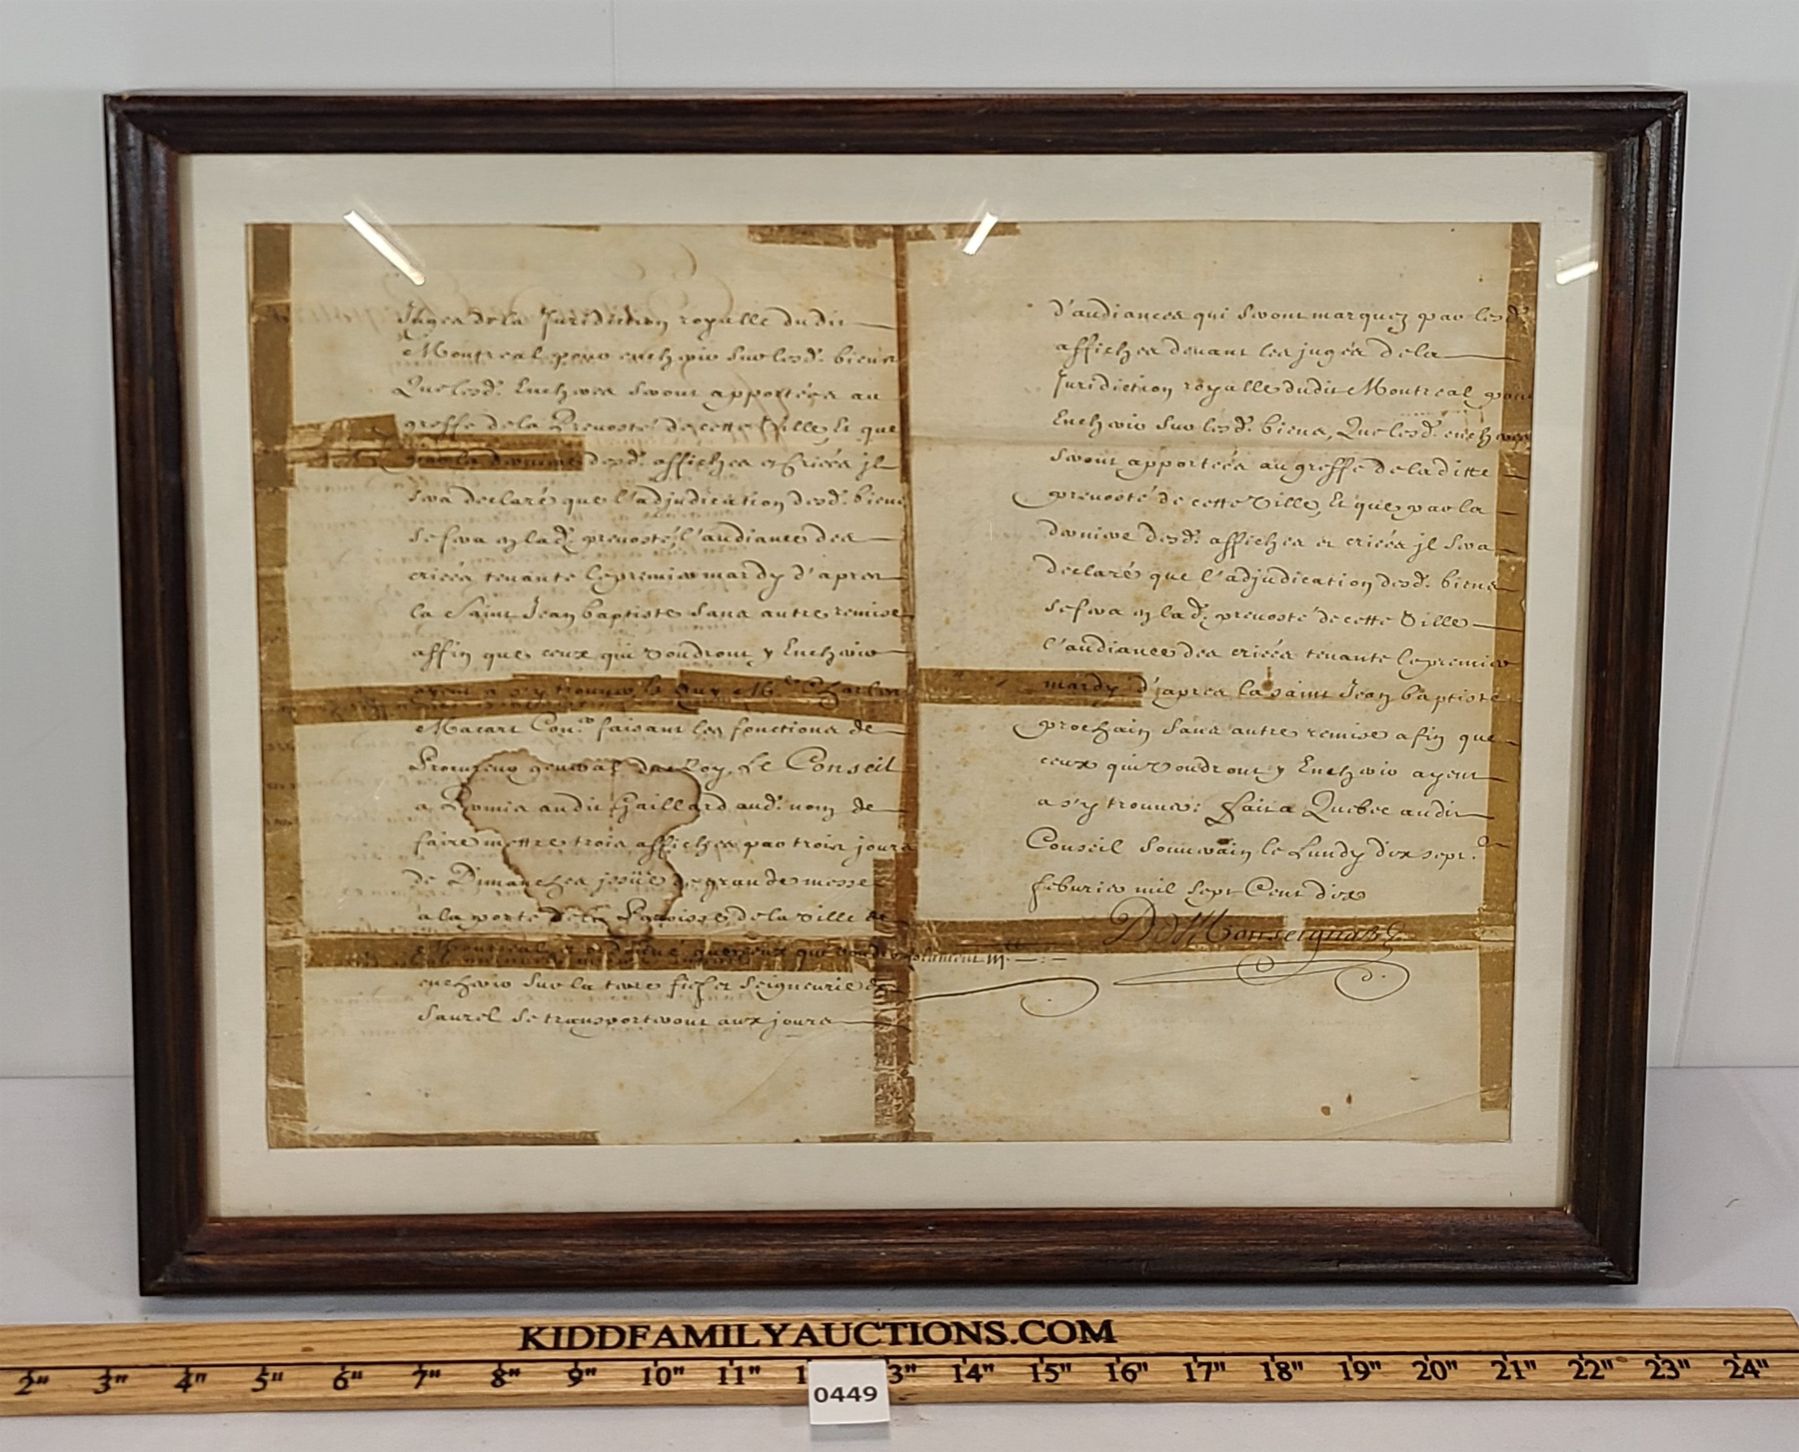 Juges de la Jurisdiction royalle dudit
Montreal pour encherir sur lesd. biens
Que lesd. Encheres seront apportées au
greffe de la Prevosté de cette Ville, Et que
par la derniere desd. affiches et Criées jl
sera declaré que l'adjudication desd. biens
se fera en lad. prevosté, l'audiance des
criées tenante le premier mardy d'apres
la Saint Jean baptiste sans autre remise
affin que ceux qui voudront y Encherir
ayent a s'y trouver, Ouy Me. Charles
Macart Conr. faisant les fonctions de
Procureur general du Roy, Le Conseil
a Permis audit Gaillard aud. nom de
faire mettre trois affiches par trois jours
de Dimanches jssüe de grande messe
a la porte de la Paroisse de la ville de
Montreal, et que ceux qui voudront
encherir sur la terre fief et seigneurie de
Saurel se transporteront aux jours
d'audiances qui seront marquez par lesd.
affiches devant les juges de la
Juridiction royalle dudit Montreal pour
Encherir sur lesd. biens, Que lesd. encheres
seront apportées au greffe de la ditte
prevosté de cette Ville, Et que par la
derniere desd. affiches et criées jl sera
declaré que l'adjudication desd. biens
se fera en lad. prevosté de cette Ville
l'audiance des criées tenante le premier
mardy d'apres la saint Jean baptiste
prochain sans autre remise afin que
ceux qui voudront y Encherir ayent
a s'y trouver: fait a Quebec audit
Conseil Souverain le Lundy dix sept.
feburier mil sept Cent dix
DeMonseignat
KIDDFAMILYAUCTIONS.COM
2" 3" 4" 5" 6" 7" 8" 9" 10" 11" 1 3" 14" 15" 16" 17" 18" 19" 20" 21" 22" 23" 24"
0449